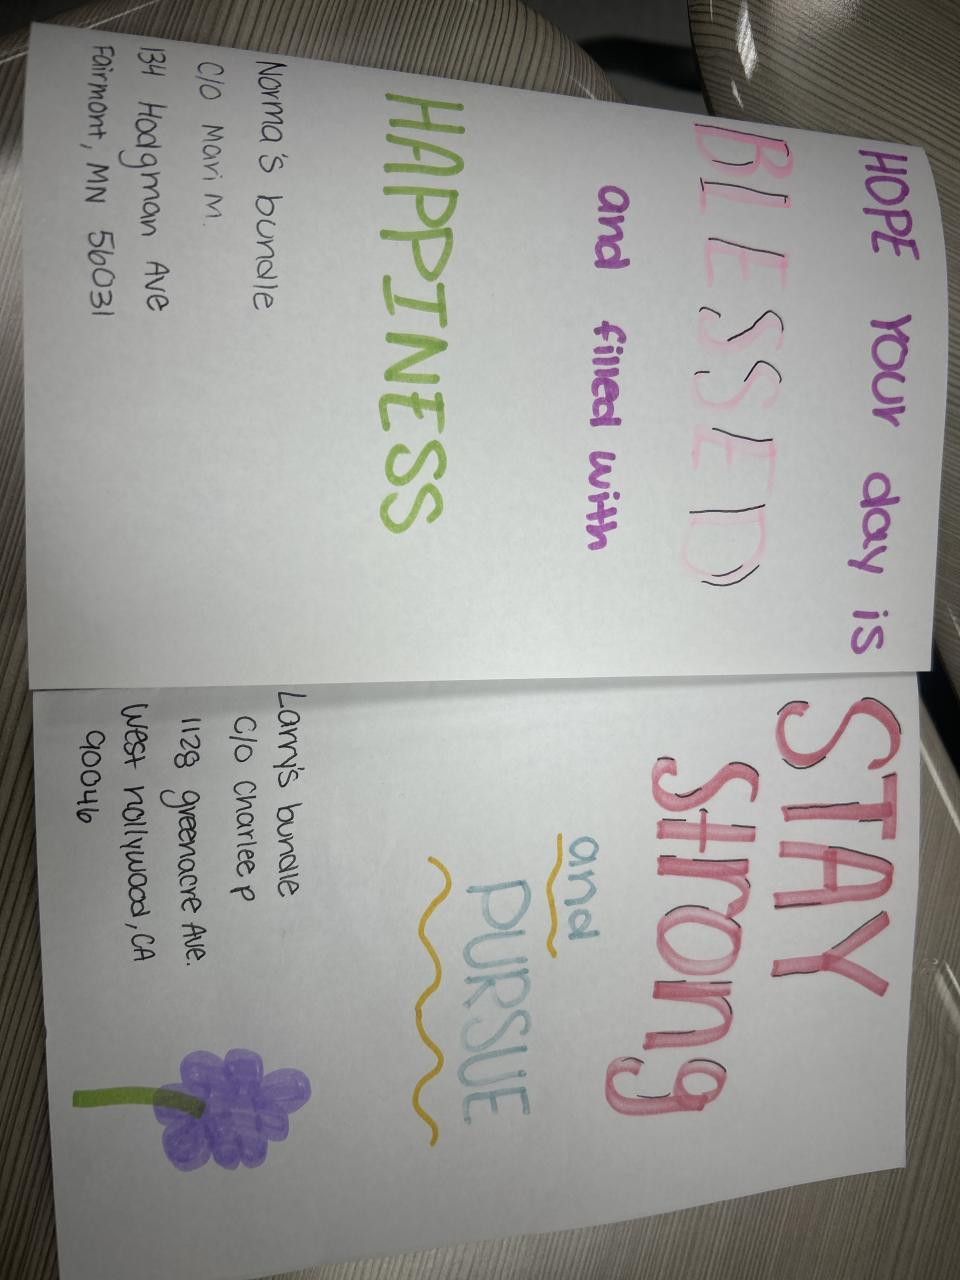 HOPE Your day is
BLESSED
and filled with
HAPPINESS
Norma's bundle
C/O Mari M.
134 Hodgman Ave
Fairmont, MN 56031
STAY
Strong
and
PURSUE
Larry's bundle
C/O Charlee P
1128 greenacre Ave.
West hollywood, CA
90046